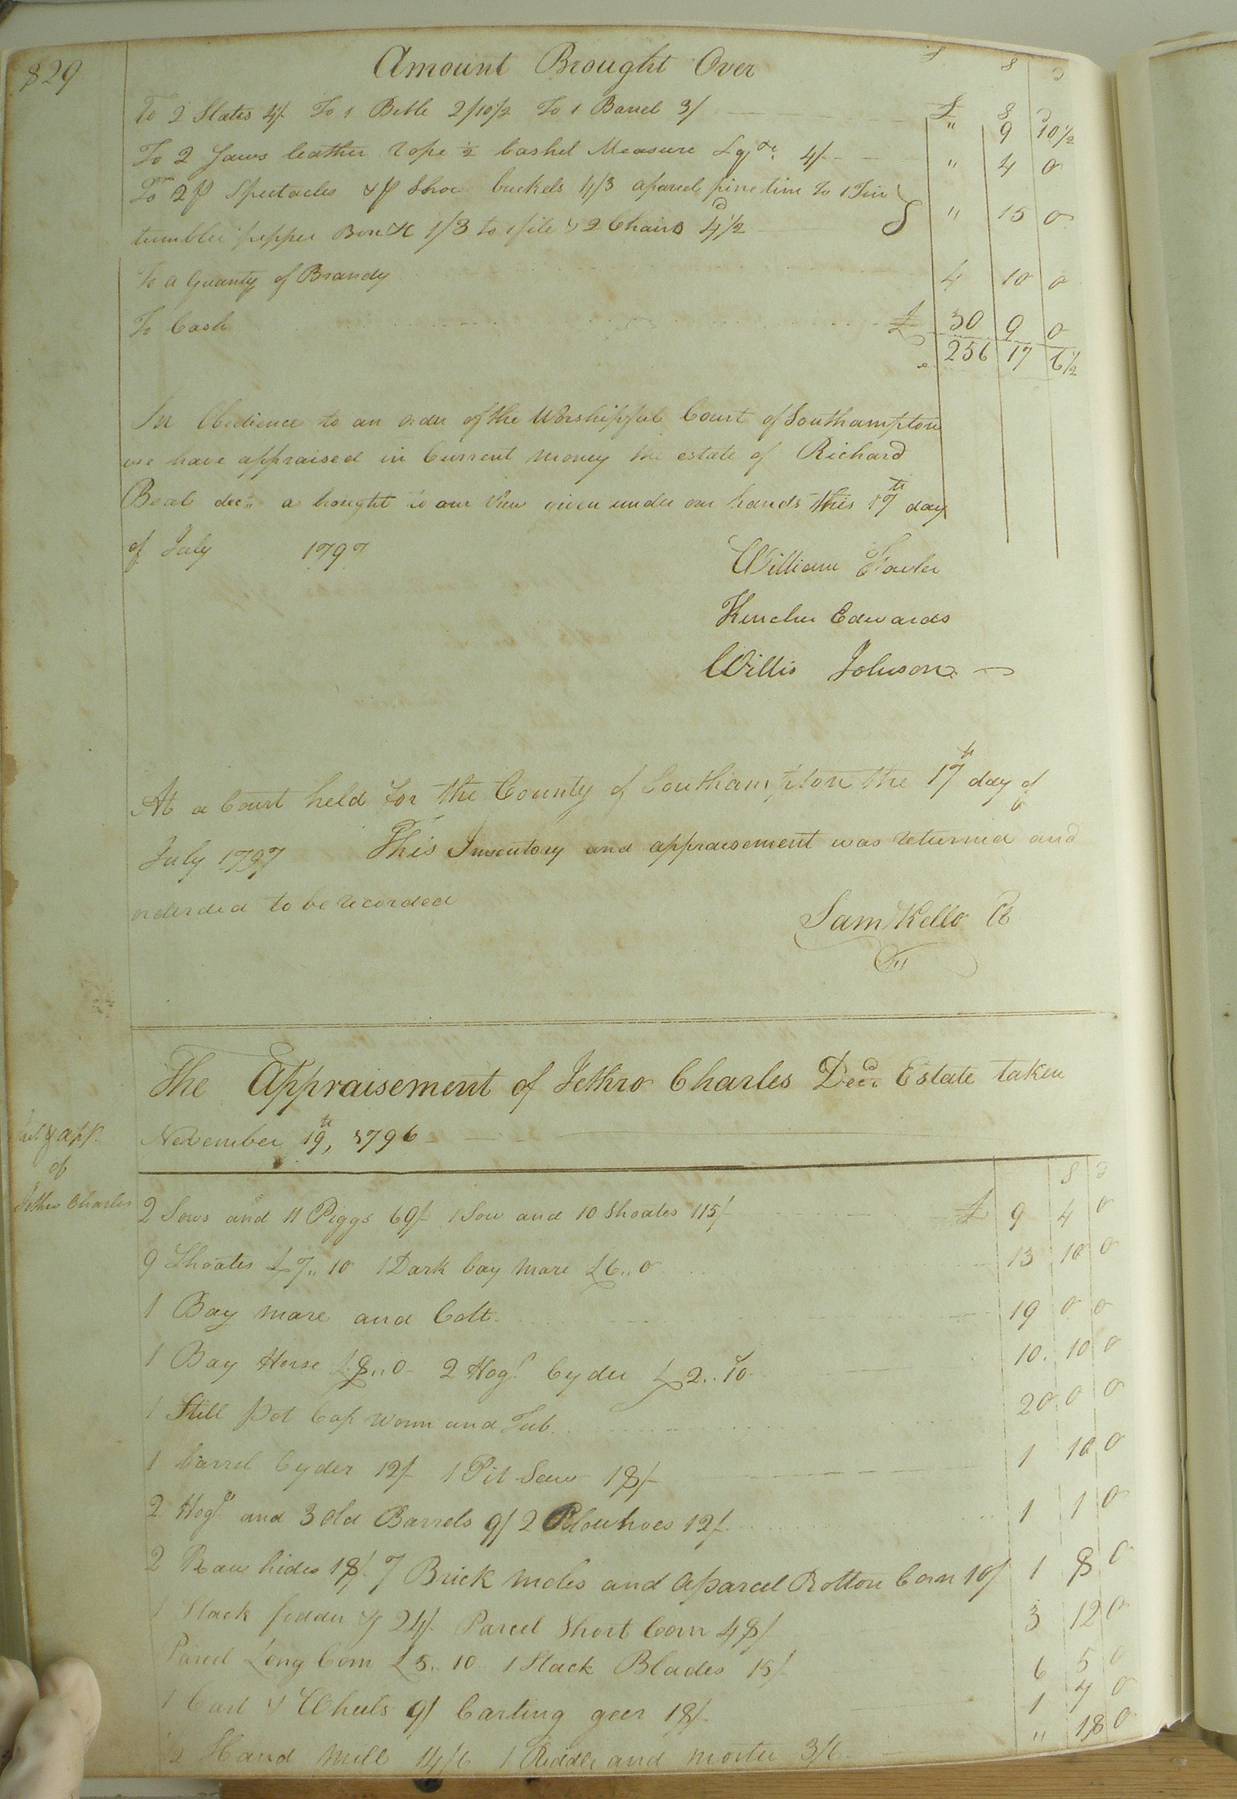 829
Amount Brought Over £ S D
To 2 Slates 4/ To 1 Bible 2/10½ To 1 Barrel 3/ £ " 9 10½
To 2 Jaws leather Rope ½ bashel Measure 4/ " 4 0
To 2 pr Spectacles & pr Shoe buckels 4/3 aparcel pine tim to 1 Tin
tumbler pepper Box &c 1/3 to 1 file & 2 Chairs 4½d " 15 0
To a Quanty of Brandy 4 10 0
To Cash £ 30 9 0
256 17 6½
In Obedience to an order of the Worshipful Court of Southampton
we have appraised in Current money the estate of Richard
Beal decd a brought to our View given under our hands this 17th day
of July 1797
William Fowler
Kinchen Edwards
Willis Johnson
At a Court held for the County of Southampton the 17th day of
July 1797 This Inventory and appraisement was returned and
orderded to be recorded
Sam Kello Ct
The Appraisement of Jethro Charles Decd Estate taken
November 19th, 1796
Inv & app.
of
Jethro Charles
S D
2 Sows and 11 Piggs 69/ 1 Sow and 10 Shoates 115/ £ 9 4 0
9 Shoates £7,, 10 1 Dark bay mare £6,, 0 13 10 0
1 Bay mare and Colt 19 0 0
1 Bay Horse £8,, 0 2 Hogds Cyder £2,, 10 10 10 0
1 Still Pot Cap worm and Tub 20 0 0
1 barrel Cyder 12/ 1 Pit Saw 18/ 1 10 0
2 Hogds and 3 old Barrels 9/ 2 Plowhoes 12/ 1 1 0
2 Raw hides 18/ 7 Brick moles and aparcel Rotton Corn 10/ 1 8 0
1 Stack fodder 24/ Parcel Short Corn 48/ 3 12 0
Parcel Long Corn £5,, 10 1 Stack Blades 15/ 6 5 0
1 Cart & Wheels 9/ Carting geer 18/ 1 7 0
½ Hand Mill 14/6 1 Riddle and morter 3/6 " 18 0